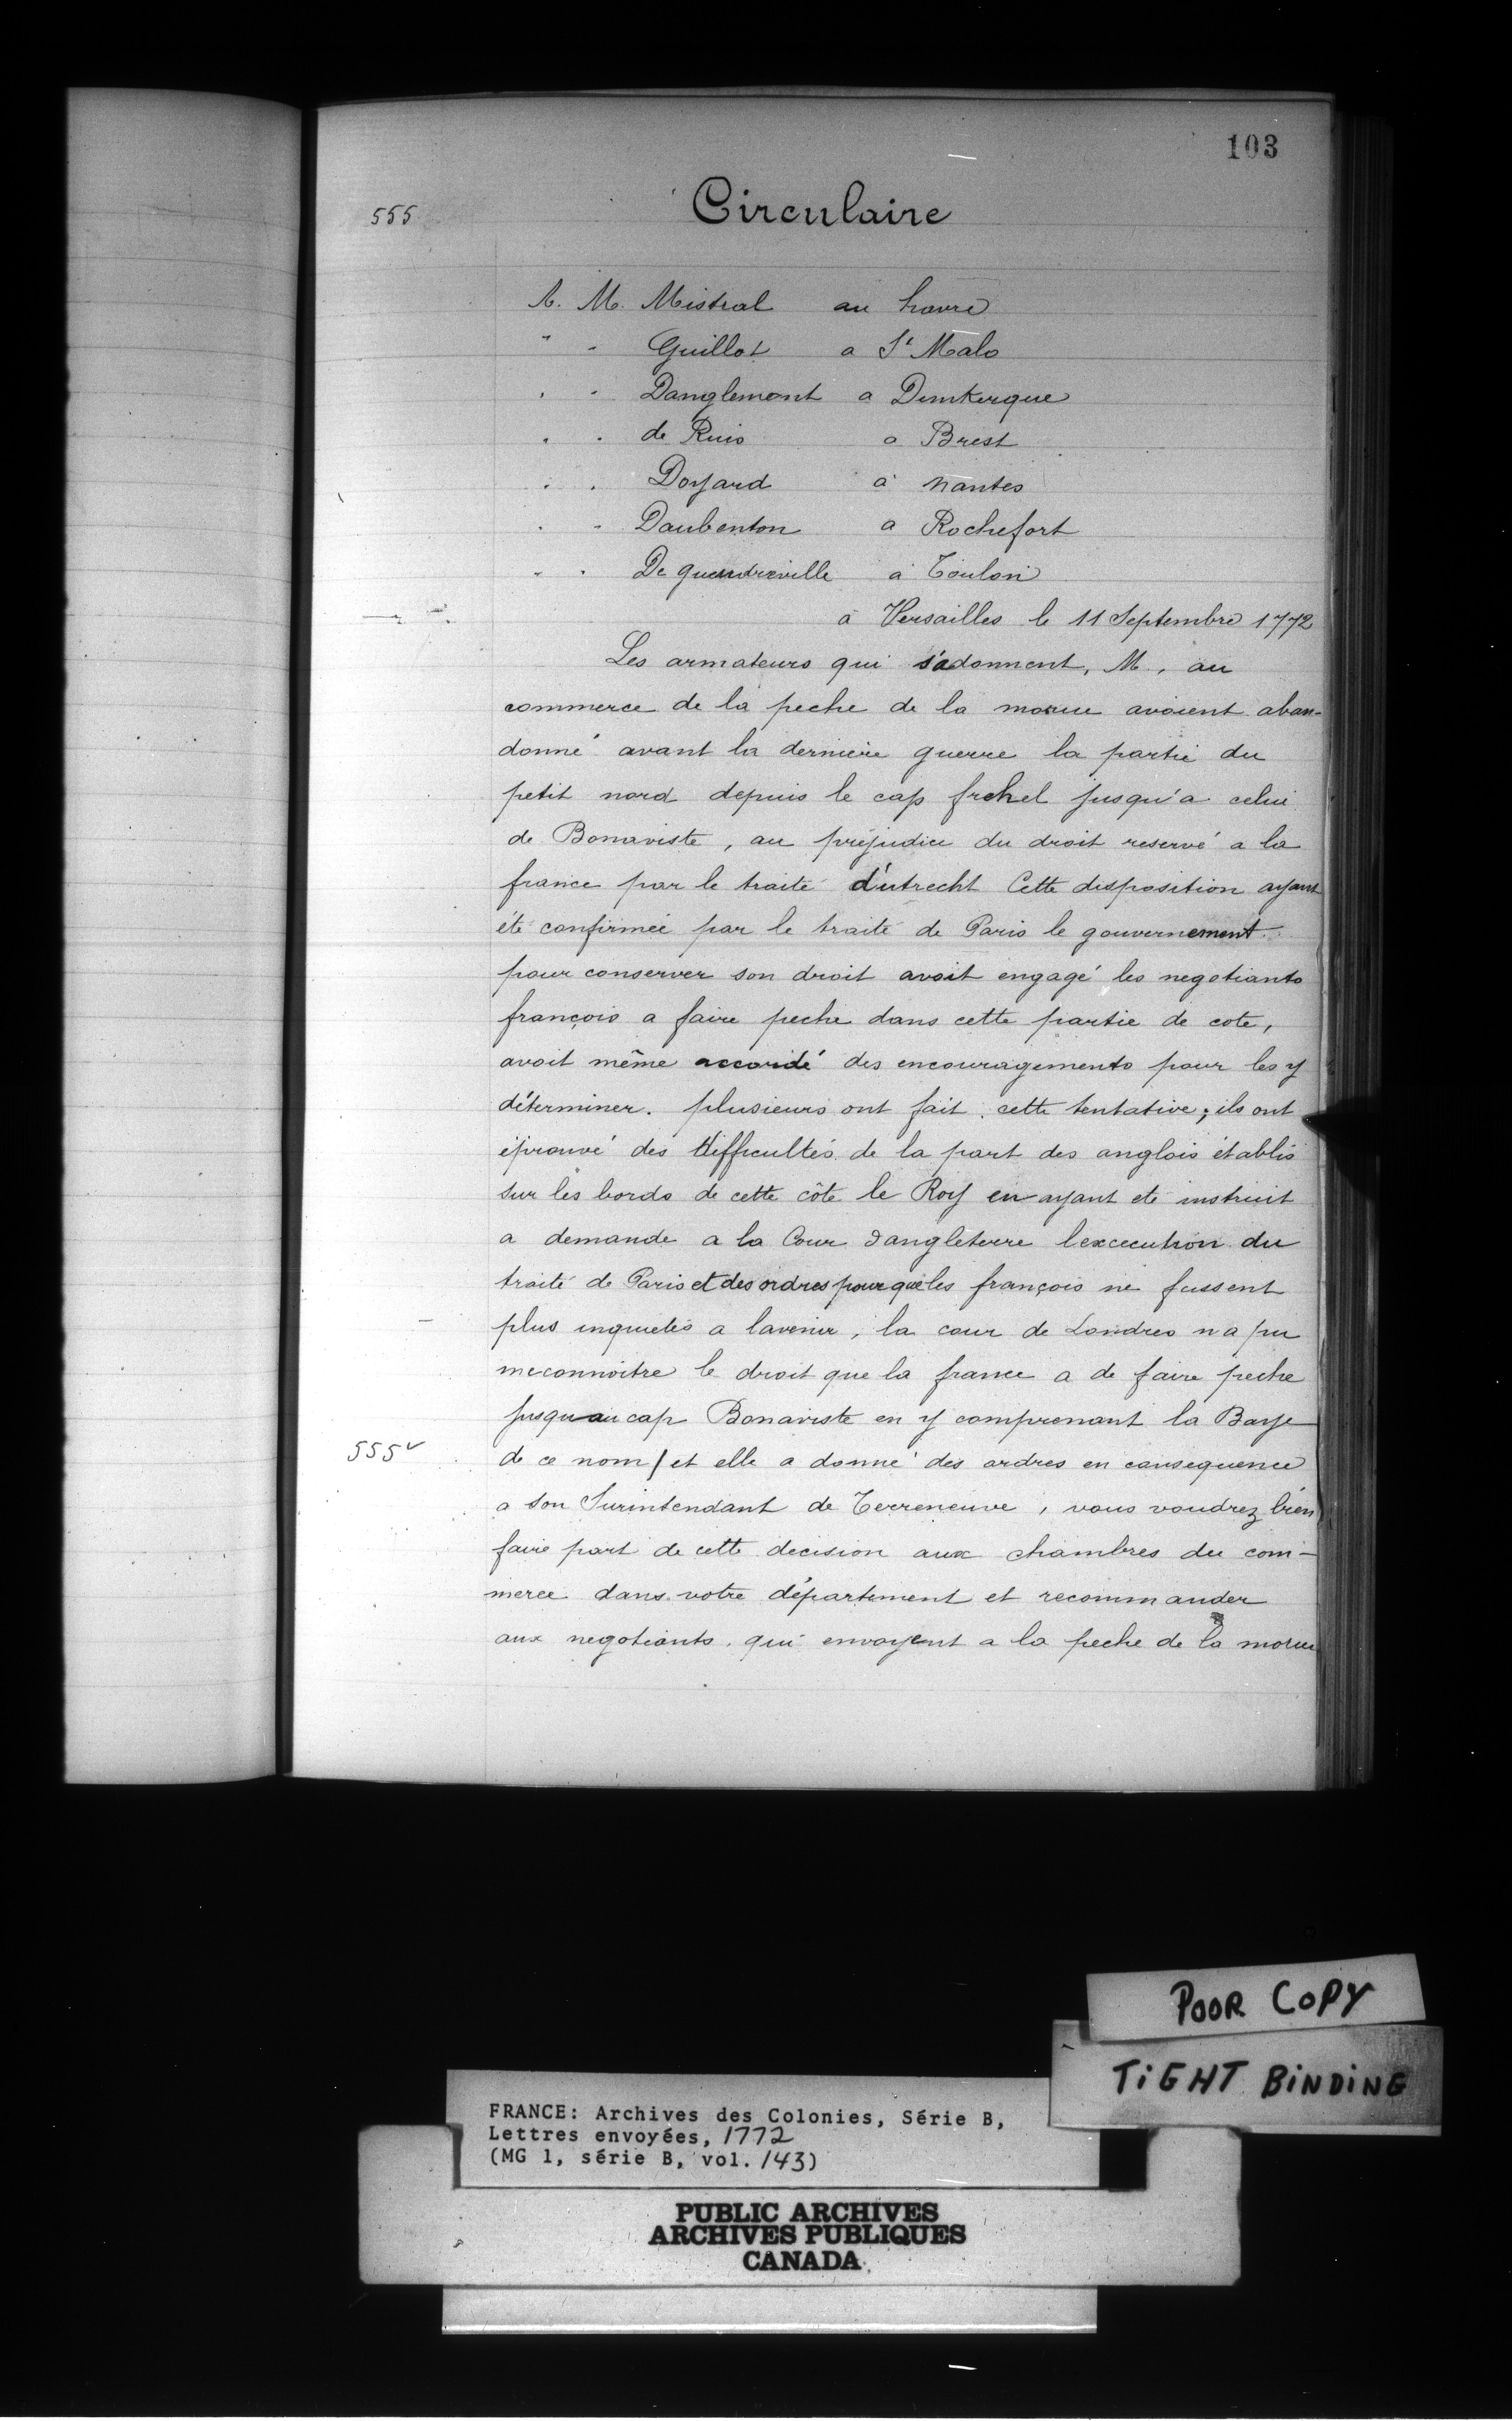 103
555
Circulaire
A. M. Mistral au havre
" " Guillot a St Malo
" " Danglemont a Dunkerque
" " de Ruis a Brest
" " Doyard a nantes
" " Daubenton a Rochefort
" " De guendreville a Toulon
a Versailles le 11 Septembre 1772
Les armateurs qui s'adonnent, M, au
commerce de la peche de la morue avoient aban-
donné avant la derniere guerre la partie du
petit nord depuis le cap frehel jusqu'a celui
de Bonaviste, au préjudice du droit reservé a la
france par le traité d'utrecht Cette disposition ayant
été confirmée par le traité de Paris le gouvernement
pour conserver son droit avoit engagé les negotiants
françois a faire peche dans cette partie de cote,
avoit même accordé des encouragements pour les y
déterminer. plusieurs ont fait cette tentative; ils ont
éprouvé des difficultés de la part des anglois établis
sur les bords de cette côte le Roy en ayant eté instruit
a demande a la Cour dangleterre lexcecution du
traité de Paris et des ordres pour que les françois ne fussent
plus inquietés a lavenir, la cour de Londres n a pu
meconnoitre le droit que la france a de faire peche
jusqu au cap Bonaviste en y comprenant la Baye
555v
de ce nom/et elle a donné des ordres en consequence
a son Surintendant de Terreneuve, vous voudrez bien
faire part de cette decision aux chambres du com-
merce dans votre département et recommander
aux negotiants qui envoyent a la peche de la morue
POOR COPY
TIGHT BINDING
FRANCE: Archives des Colonies, Série B,
Lettres envoyées, 1772
(MG 1, série B, vol. 143)
PUBLIC ARCHIVES
ARCHIVES PUBLIQUES
CANADA